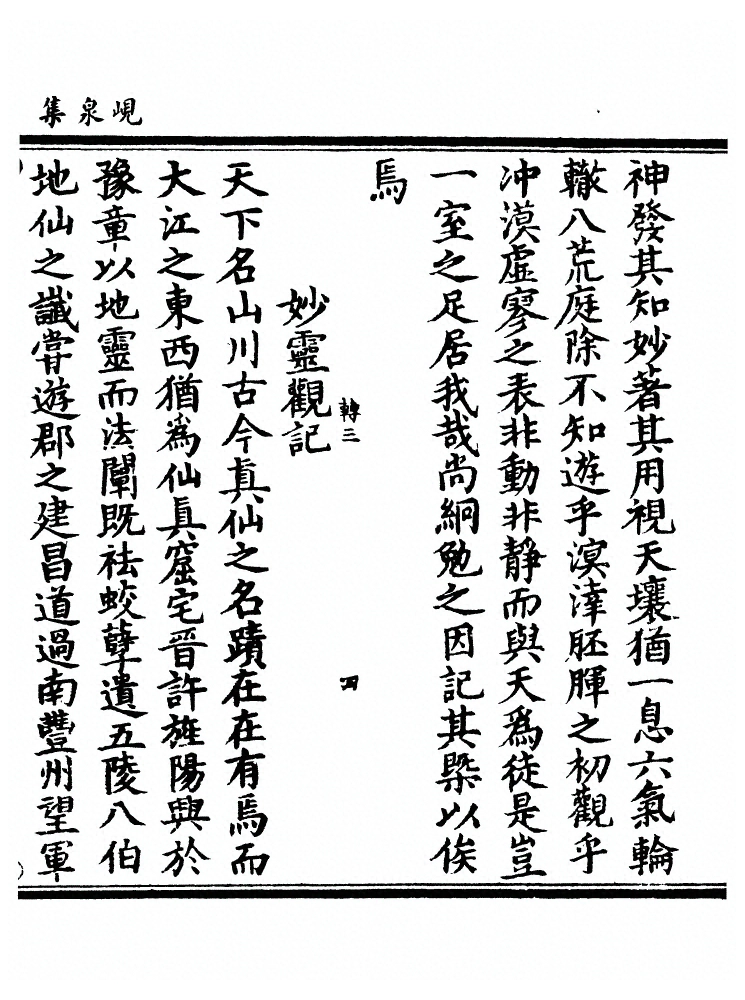 峴泉集
神發其知妙著其用視天壤猶一息六氣輪
轍八荒庭除不知遊乎溟涬胚腪之初觀乎
冲漠虛寥之表非動非靜而與天為徒是豈
一室之足居我哉尚絅勉之因記其槩以俟
焉
轉三
四
妙靈觀記
天下名山川古今真仙之名蹟在在有焉而
大江之東西猶為仙真窟宅晉許旌陽興於
豫章以地靈而法闡既祛蛟孽遺五陵八伯
地仙之讖嘗遊郡之建昌道過南豐州望軍